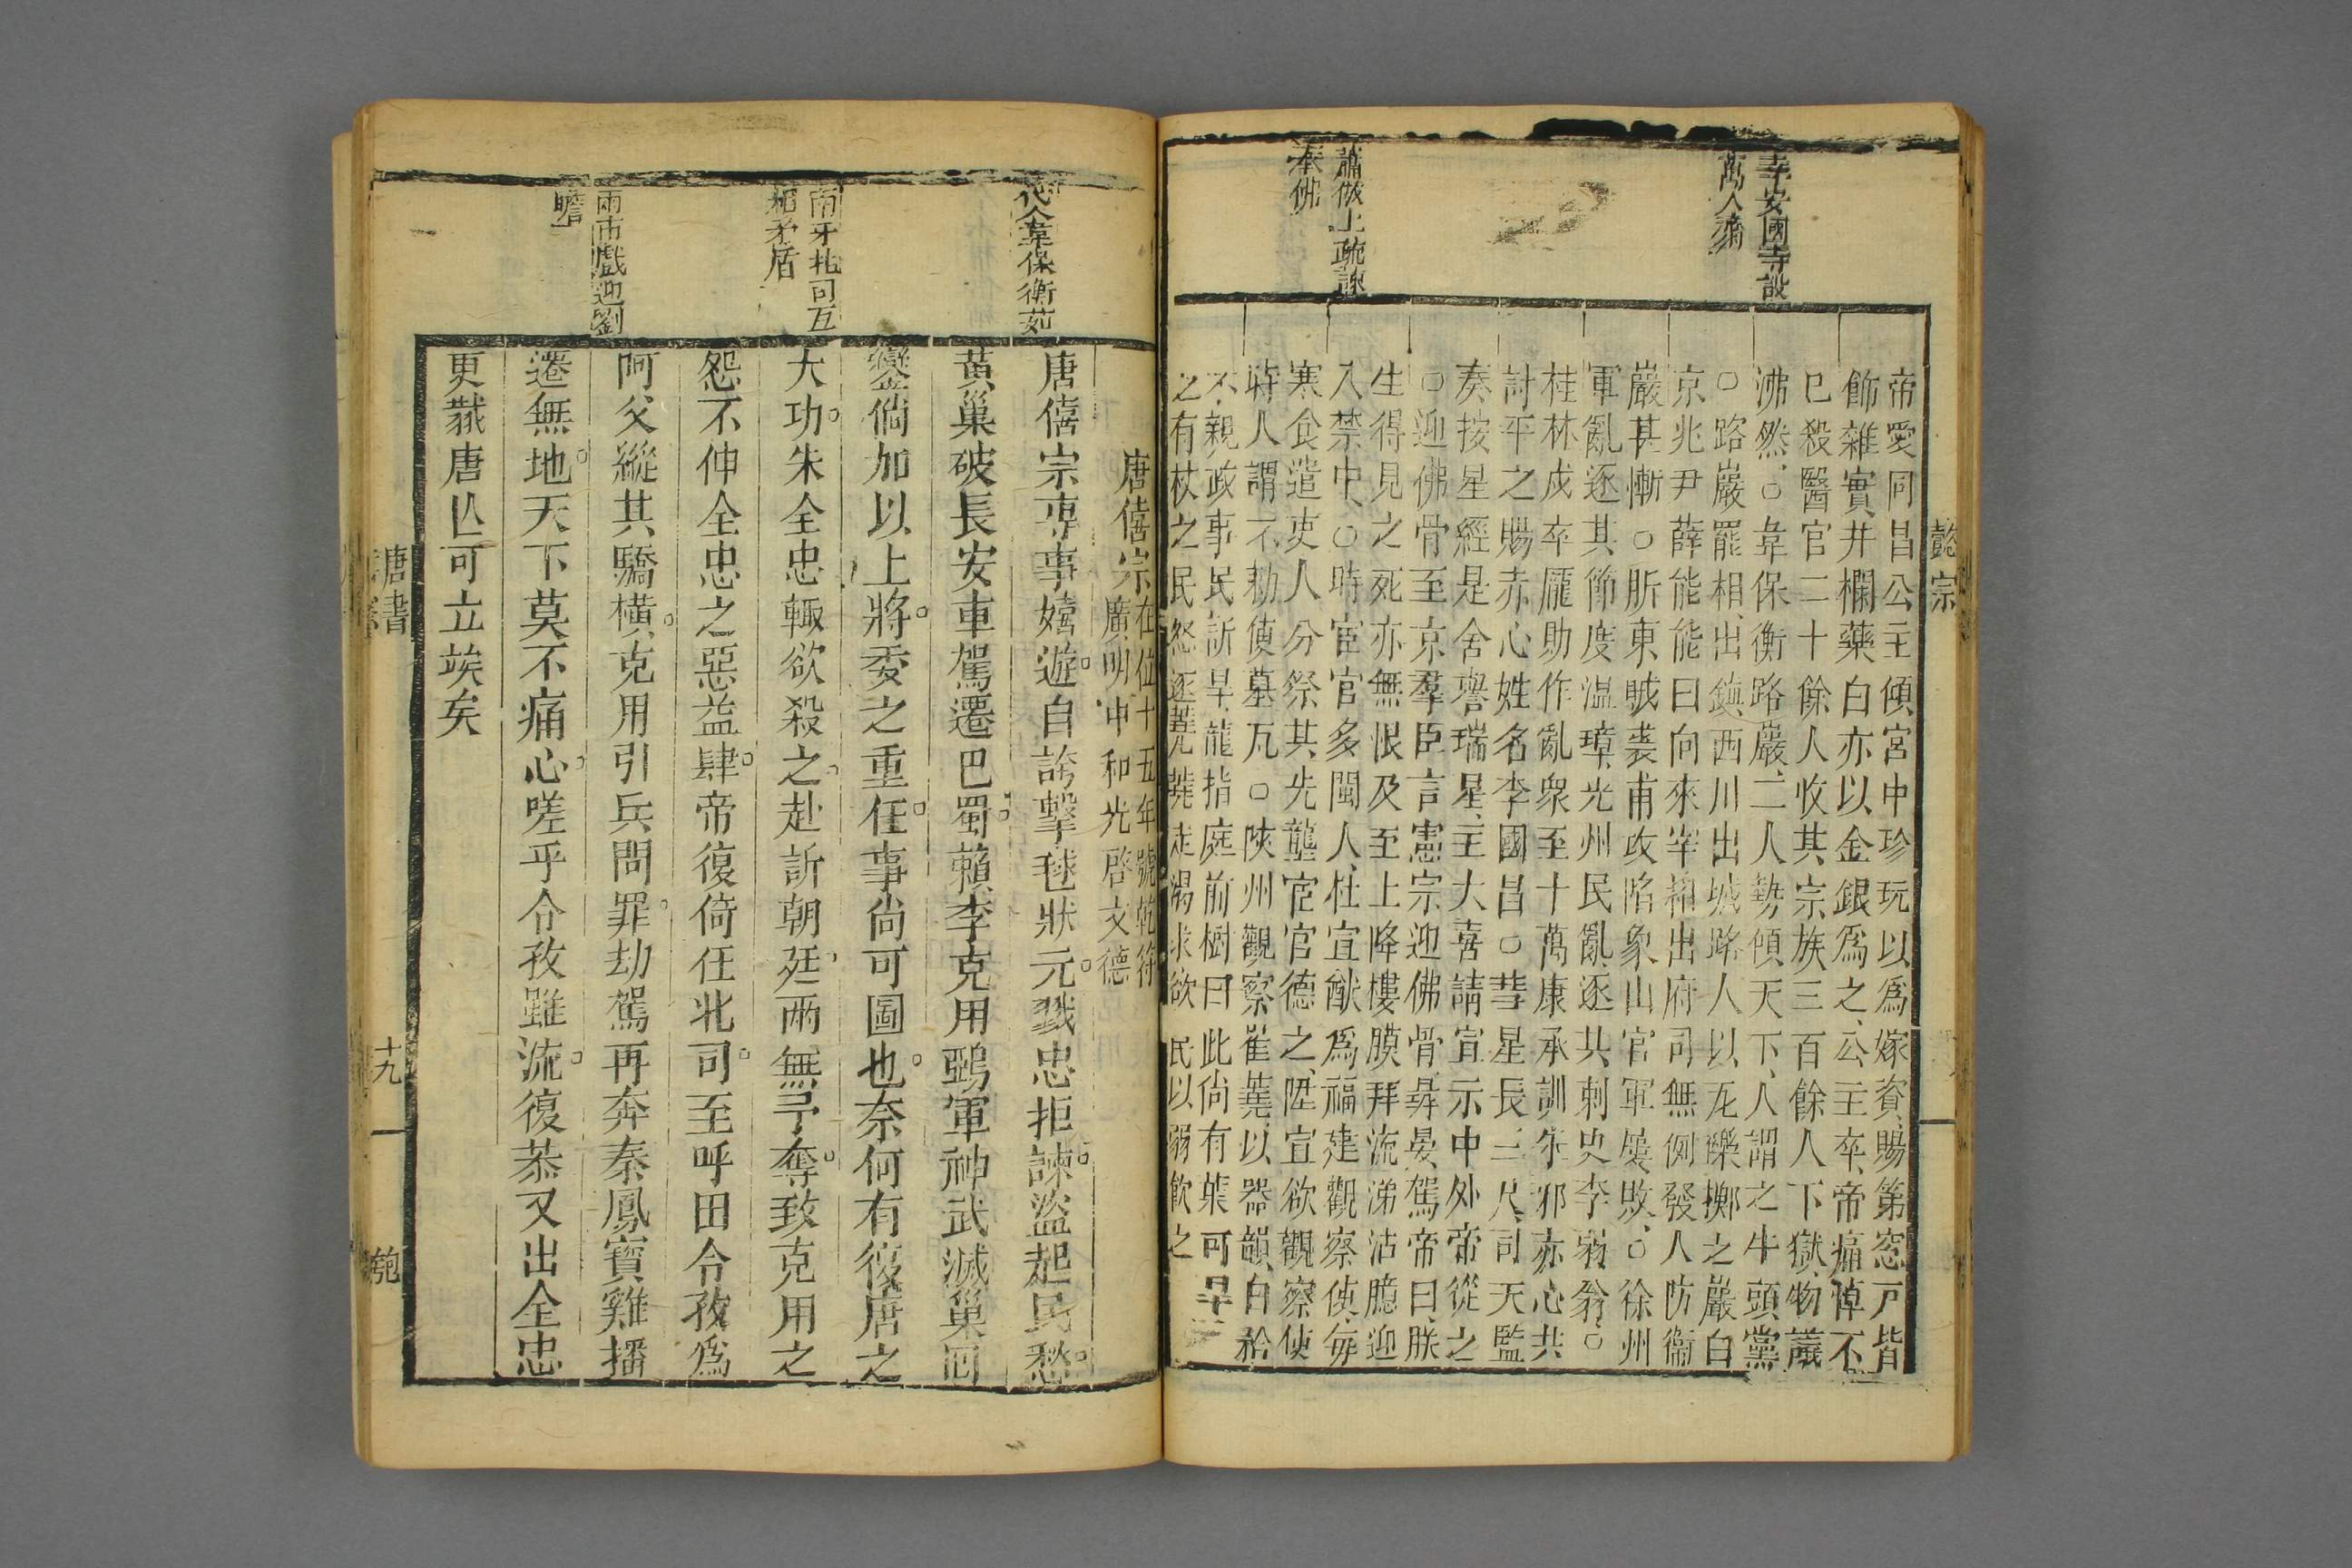 幸安國寺設
萬人齋
蕭倣上疏諫
奉佛
懿宗
帝愛同昌公主傾宮中珍玩以爲嫁資賜第窓戸皆
飾雜寶井欄藥臼亦以金銀爲之公主卒帝痛悼不
已殺醫官二十餘人收其宗族三百餘人下獄物議
沸然○韋保衡路巖二人勢傾天下人謂之牛頭黨
○路巖罷相出鎮西川出城路人以瓦礫擲之巖白
京兆尹薛能能曰向來宰相出府司無例發人防衞
巖甚慚○浙東賊裘甫攻陷象山官軍屢敗○徐州
軍亂逐其節度温璋光州民亂逐其刺史李弱翁○
桂林戍卒龎勛作亂衆至十萬康承訓朱邪赤心共
討平之賜赤心姓名李國昌○彗星長三尺司天監
奏按星經是含譽瑞星主大喜請宣示中外帝從之
○迎佛骨至京羣臣言憲宗迎佛骨尋晏駕帝曰朕
生得見之死亦無恨及至上降樓膜拜流涕沾臆迎
入禁中○時宦官多閩人杜宣猷爲福建觀察使每
寒食遣吏人分祭其先壟宦官德之陞宣歙觀察使
時人謂不勅使墓瓦○陜州觀察崔蕘以器韻自矜
不親政事民訴旱蕘指庭前樹曰此尚有葉何旱
之有杖之民怒逐蕘蕘走渴求飲民以溺飲之
代公韋保衡茹
南牙北司互
相矛盾
兩市戲迎劉
瞻
唐僖宗在位十五年號乾符
廣明中和光啓文德
唐僖宗專事嬉遊自誇擊毬狀元戮忠拒諫盜起民愁
黄巢破長安車駕遷巴蜀賴李克用鵶軍神武滅巢囘
鑾倘加以上將委之重任事尚可圖也奈何有復唐之
大功朱全忠輒欲殺之赴訴朝廷兩無予奪致克用之
怨不伸全忠之惡益肆帝復倚任北司至呼田令孜爲
阿父縱其驕橫克用引兵問罪劫駕再奔秦鳳寶雞播
遷無地天下莫不痛心嗟乎令孜雖流復恭又出全忠
更弑唐亾可立竢矣
唐書
十九